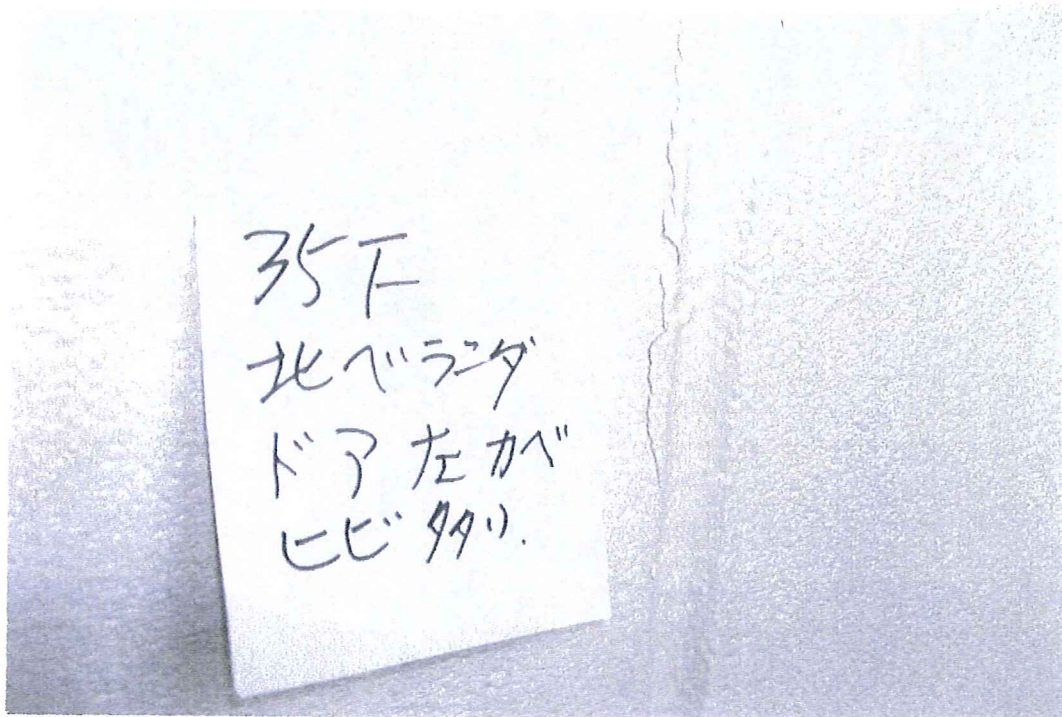 35下
北ベランダ
ドア左カベ
ヒビ多い.